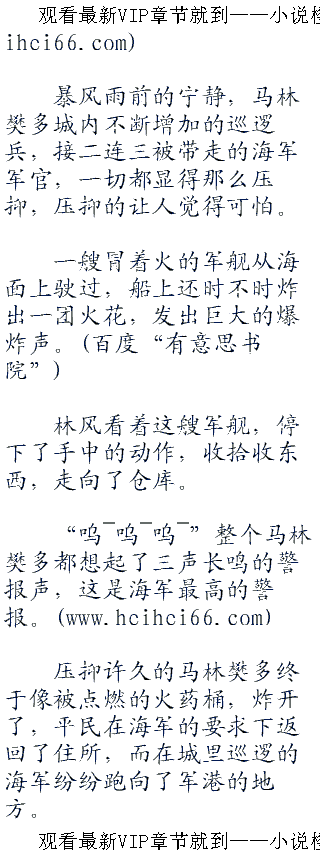 观看最新VIP章节就到——小说楼
ihci66.com)
暴风雨前的宁静，马林
樊多城内不断增加的巡逻
兵，接二连三被带走的海军
军官，一切都显得那么压
抑，压抑的让人觉得可怕。
一艘冒着火的军舰从海
面上驶过，船上还时不时炸
出一团火花，发出巨大的爆
炸声。(百度“有意思书
院”)
林风看着这艘军舰，停
下了手中的动作，收拾收东
西，走向了仓库。
“呜¯呜¯呜¯”整个马林
樊多都想起了三声长鸣的警
报声，这是海军最高的警
报。(www.hcihci66.com)
压抑许久的马林樊多终
于像被点燃的火药桶，炸开
了，平民在海军的要求下返
回了住所，而在城里巡逻的
海军纷纷跑向了军港的地
方。
观看最新VIP章节就到——小说楼